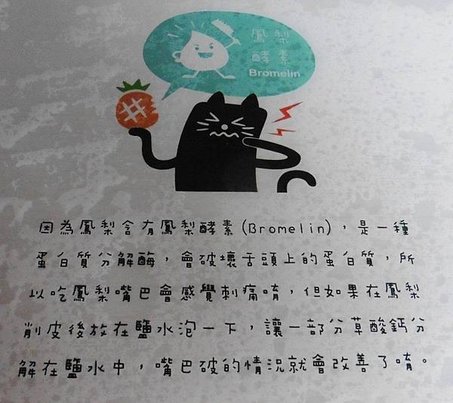 鳳梨
酵素
Bromelin
因為鳳梨含有鳳梨酵素(Bromelin)，是一種
蛋白質分解酶，會破壞舌頭上的蛋白質，所
以吃鳳梨嘴巴會感覺刺痛唷，但如果在鳳梨
削皮後放在鹽水泡一下，讓一部分草酸鈣分
解在鹽水中，嘴巴破的情況就會改善了唷。